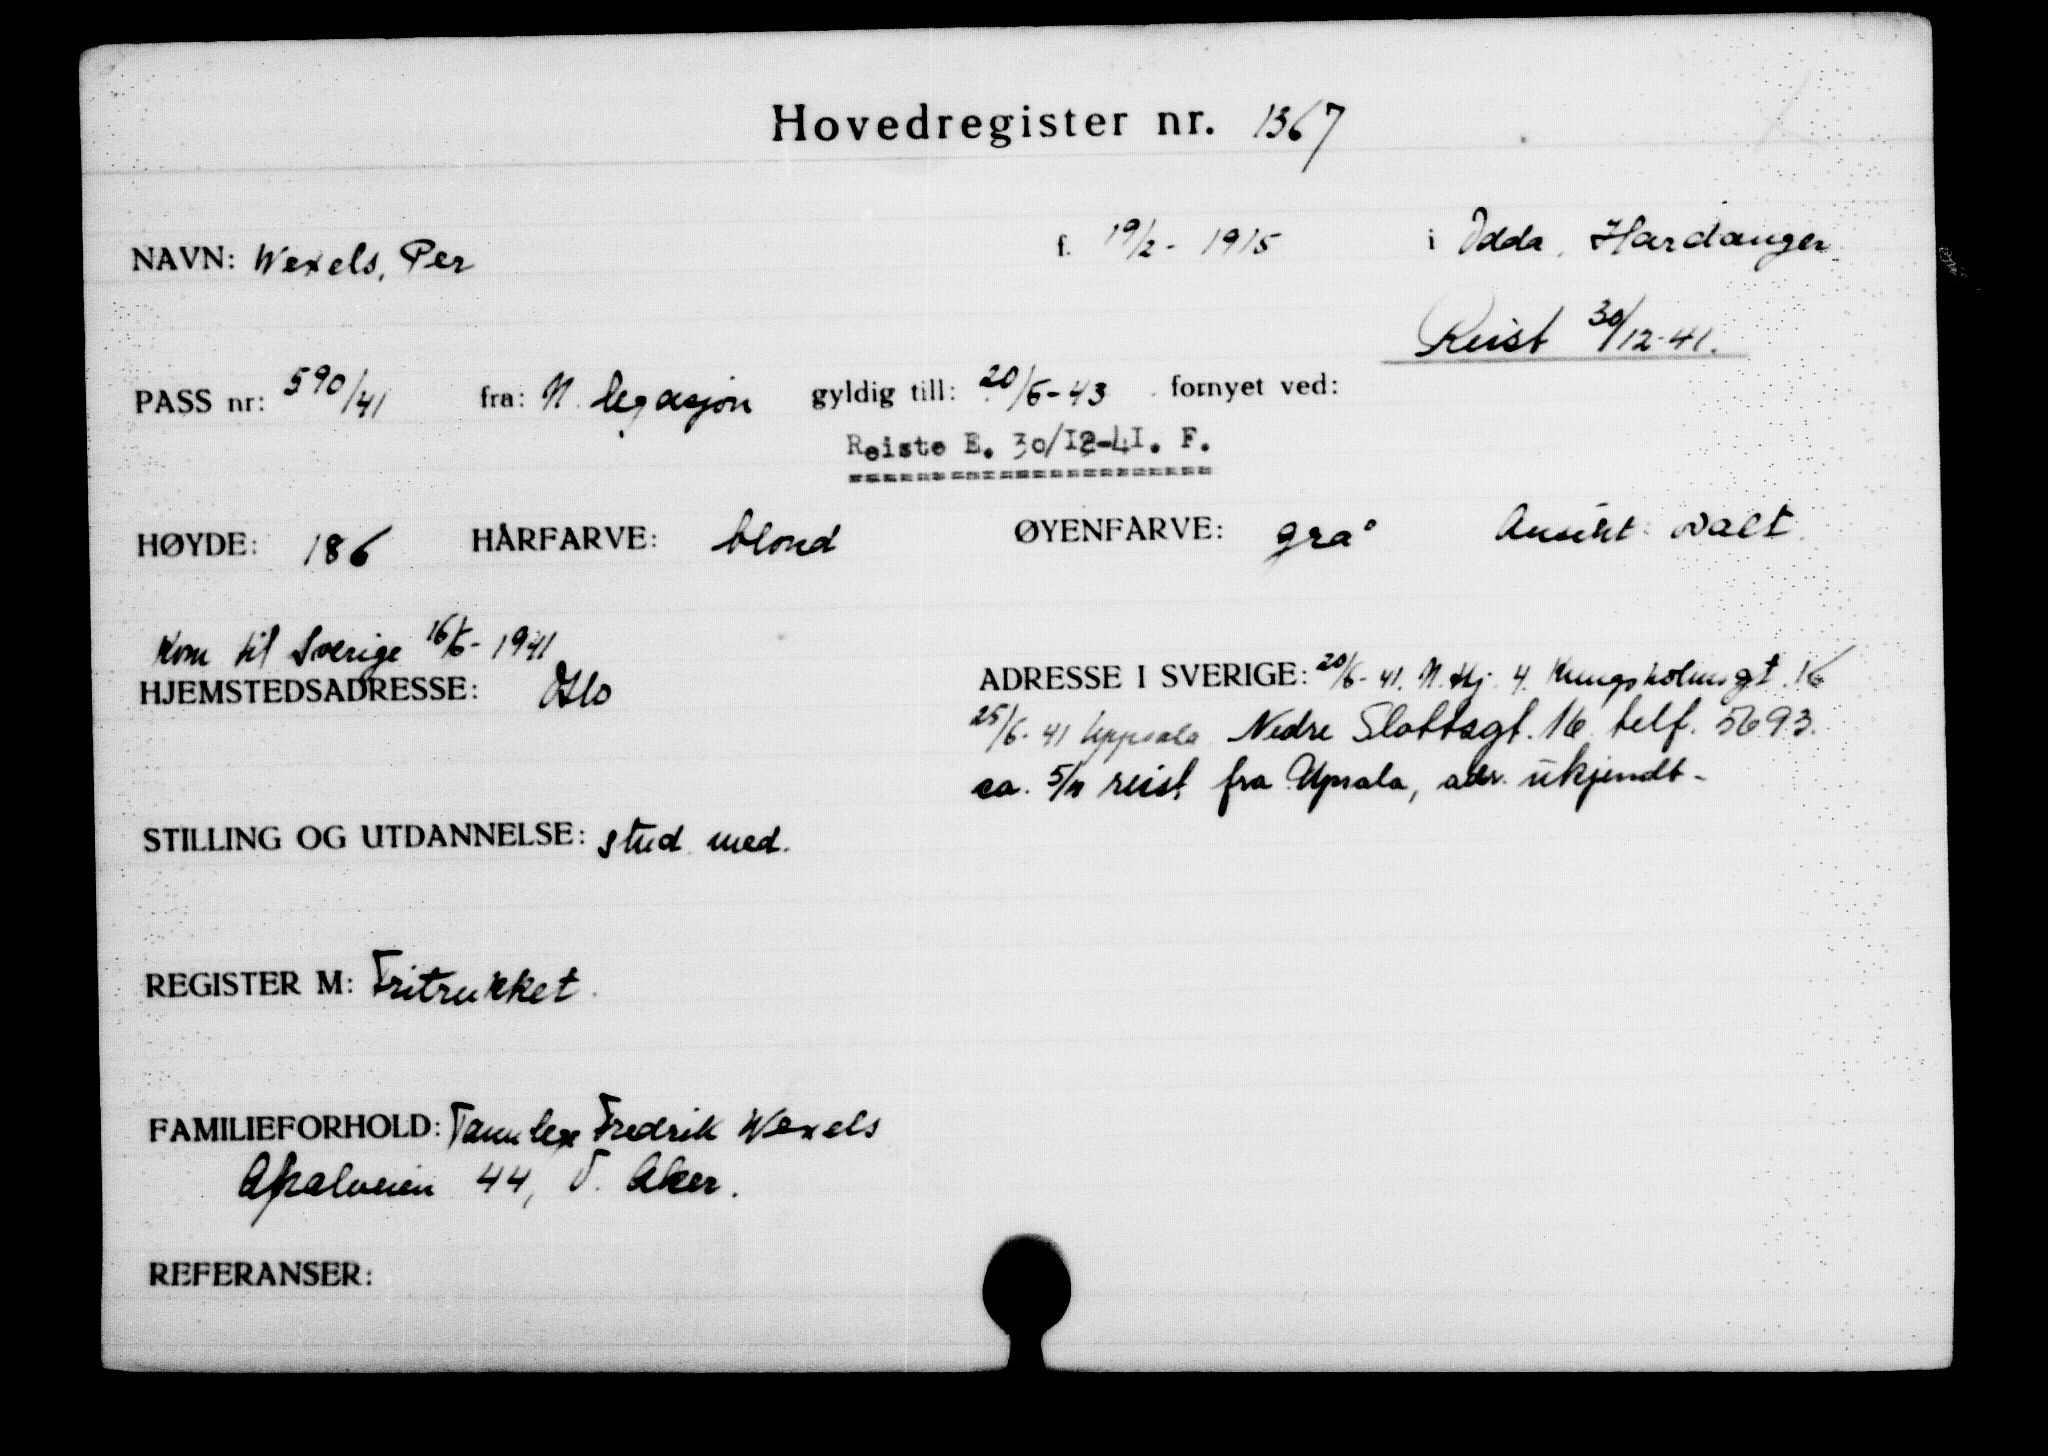 Hovedregister nr. 1367
NAVN: Wexels, Per f. 19/2- 1915 i Odda, Hardanger
Reist 30/12-41.
PASS nr: 590/41 fra: N. legasjon gyldig till: 20/6-43 fornyet ved:
Reiste E. 30/12-41. F.
HØYDE: 186 HÅRFARVE: blond ØYENFARVE: grå Ansikt ovalt
Kom til Sverige 16/6- 1941
HJEMSTEDSADRESSE: Oslo ADRESSE I SVERIGE: 20/6-41. N. Hj. 4. Kungsholmsgt. 16
25/6-41 Uppsala Nedre Slottsgt. 16 telf. 5693.
ca. 5/11 reist fra Upsala, adr. ukjendt-
STILLING OG UTDANNELSE: stud. med.
REGISTER M: Fritrukket
FAMILIEFORHOLD: Fredrik Wexels
44, V. Aker.
REFERANSER: